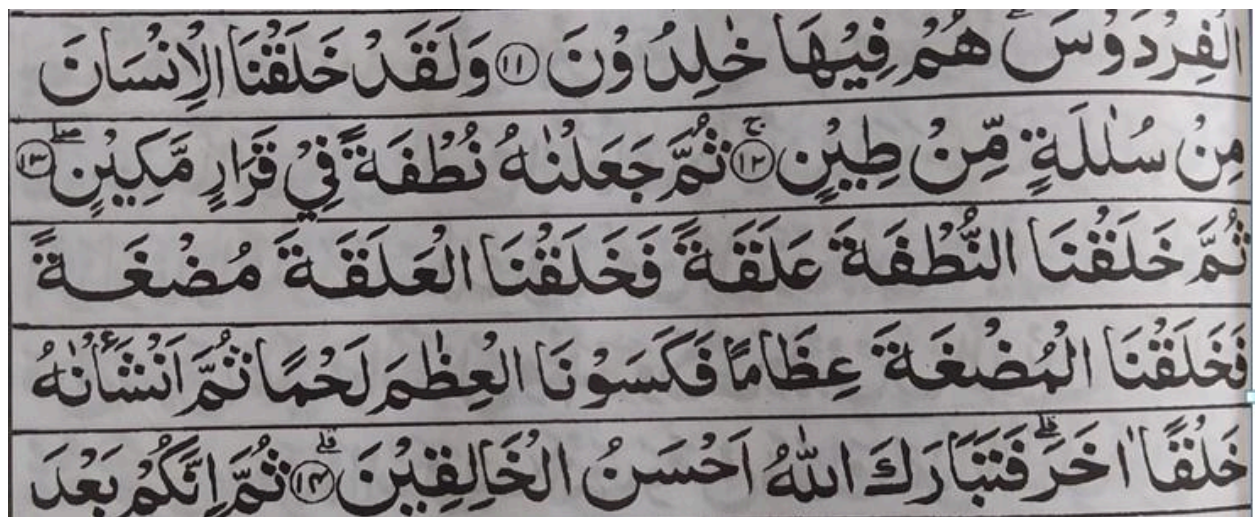 الْفِرْدَوْسَ ؕ هُمْ فِيْهَا خٰلِدُوْنَ ﴿۱۱﴾ وَلَقَدْ خَلَقْنَا الْاِنْسَانَ
مِنْ سُلٰلَةٍ مِّنْ طِيْنٍ ۚ﴿۱۲﴾ ثُمَّ جَعَلْنٰهُ نُطْفَةً فِيْ قَرَارٍ مَّكِيْنٍ ۖ﴿۱۳﴾
ثُمَّ خَلَقْنَا النُّطْفَةَ عَلَقَةً فَخَلَقْنَا الْعَلَقَةَ مُضْغَةً
فَخَلَقْنَا الْمُضْغَةَ عِظَامًا فَكَسَوْنَا الْعِظٰمَ لَحْمًا ثُمَّ اَنْشَاْنٰهُ
خَلْقًا اٰخَرَ ؕ فَتَبَارَكَ اللّٰهُ اَحْسَنُ الْخَالِقِيْنَ ؕ﴿۱۴﴾ ثُمَّ اِنَّكُمْ بَعْدَ